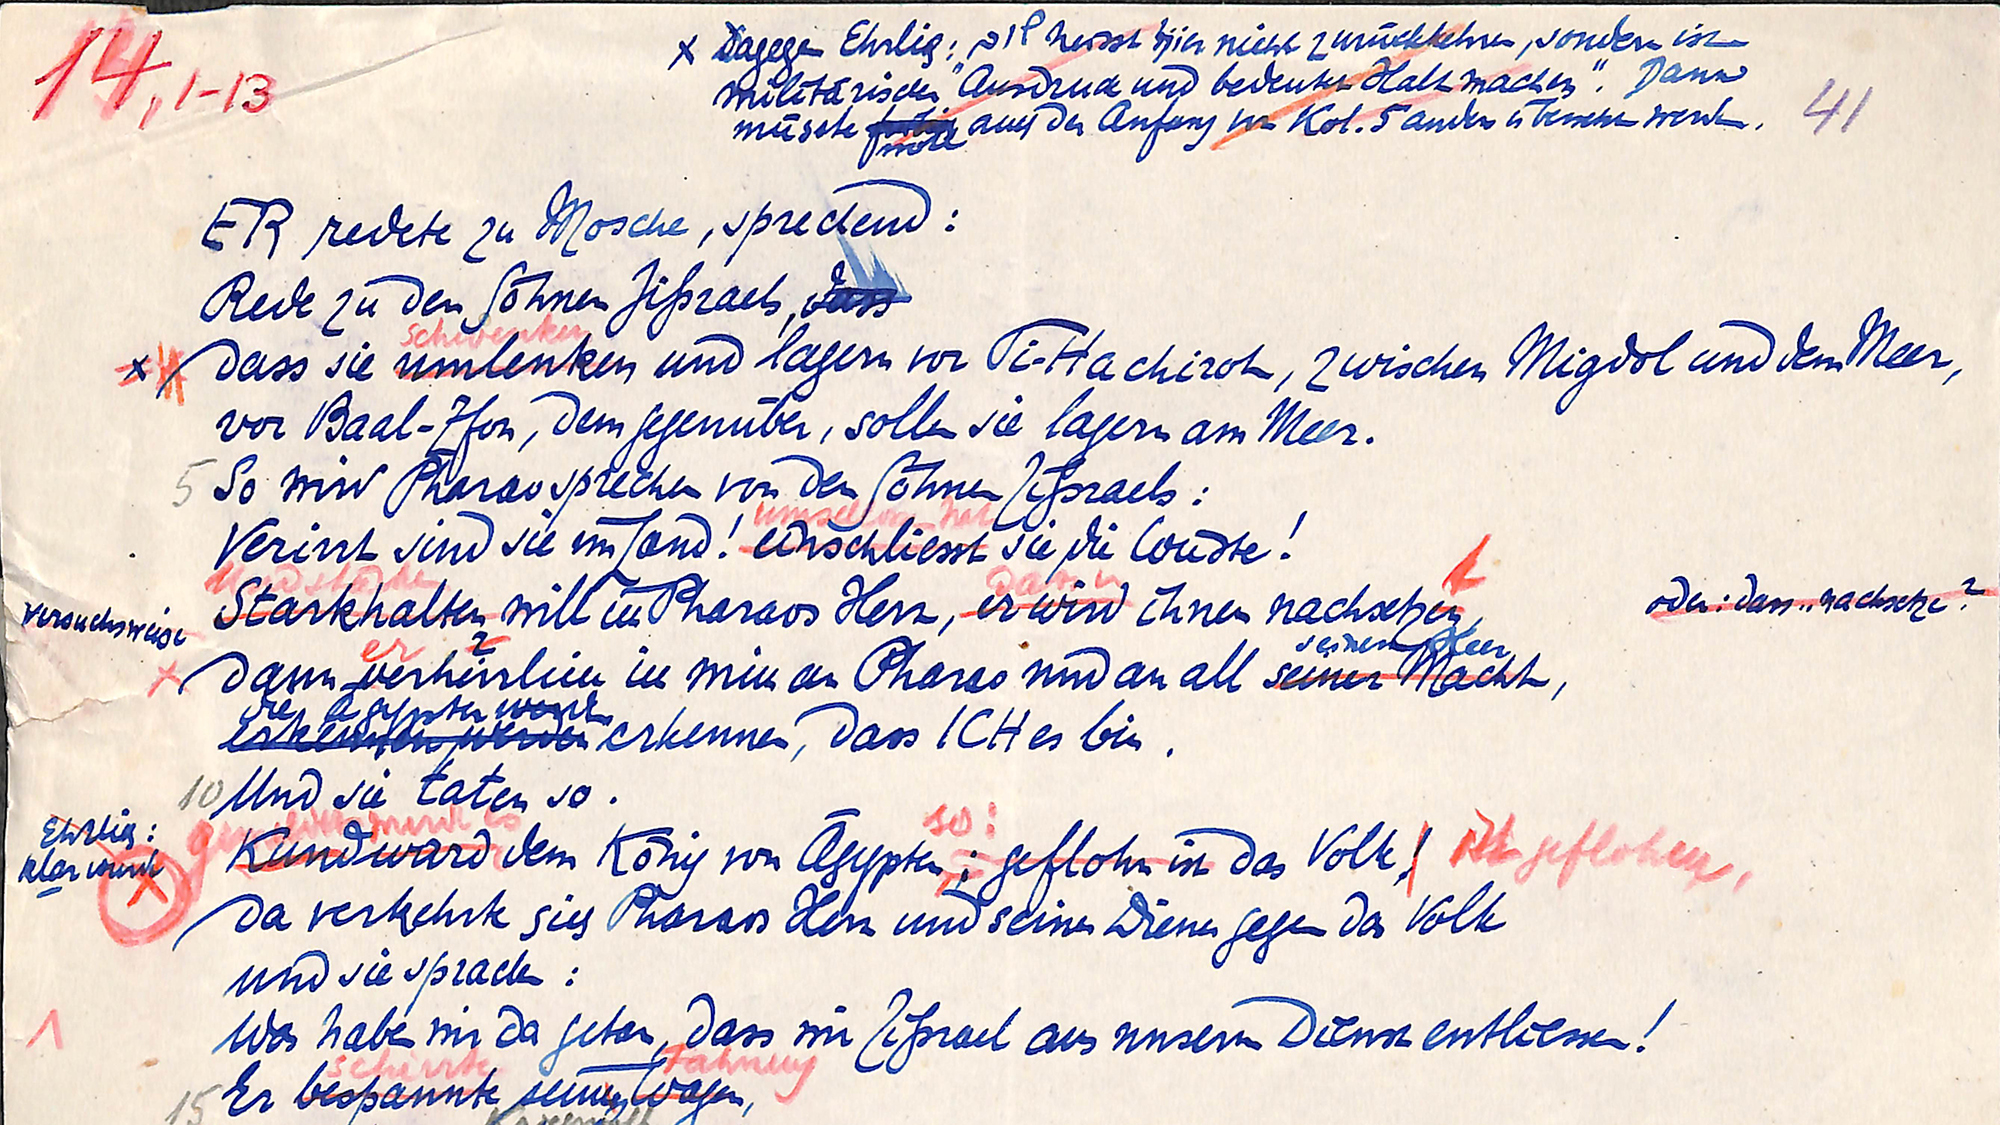 14, 1-13
x Dagegen Ehrlich: שוב heisst hier nicht zurückkehren, sondern ist
militärischer „Ausdruck und bedeutet Halt machen". Dann
müsste wohl auch der Anfang von Kol. 5 anders übersetzt werden.
41
ER redete zu Mosche, sprechend:
Rede zu den Söhnen Jissraels, dass
schwenken
x dass sie umlenken und lagern vor Pi-Hachirot, zwischen Migdol und dem Meer,
vor Baal-Zfon, dem gegenüber, sollen sie lagern am Meer.
5 So wird Pharao sprechen von den Söhnen Jissraels:
Verirrt sind sie im Land! einschliesst sie die Wüste!
versuchsweise
Starkhalten will ich Pharaos Herz, er wird ihnen nachsetzen,
oder: dass .. nachsetze?
darin
er ?
seinem Heer
x Dann verherrliche ich mich an Pharao und an all seiner Macht,
die Ägypter werden
erkennen werden erkennen, dass ICH es bin.
10 Und sie taten so.
Ehrlich:
klar ward
so:
Kund ward dem König von Ägypten: geflohn ist das Volk! ist geflohen,
Da verkehrte sich Pharaos Herz und seiner Diener gegen das Volk
und sie sprachen:
Was haben wir da getan, dass wir Jissrael aus unserm Dienst entliessen!
schirrte Fahrzeug
15 Er bespannte seinen Wagen,